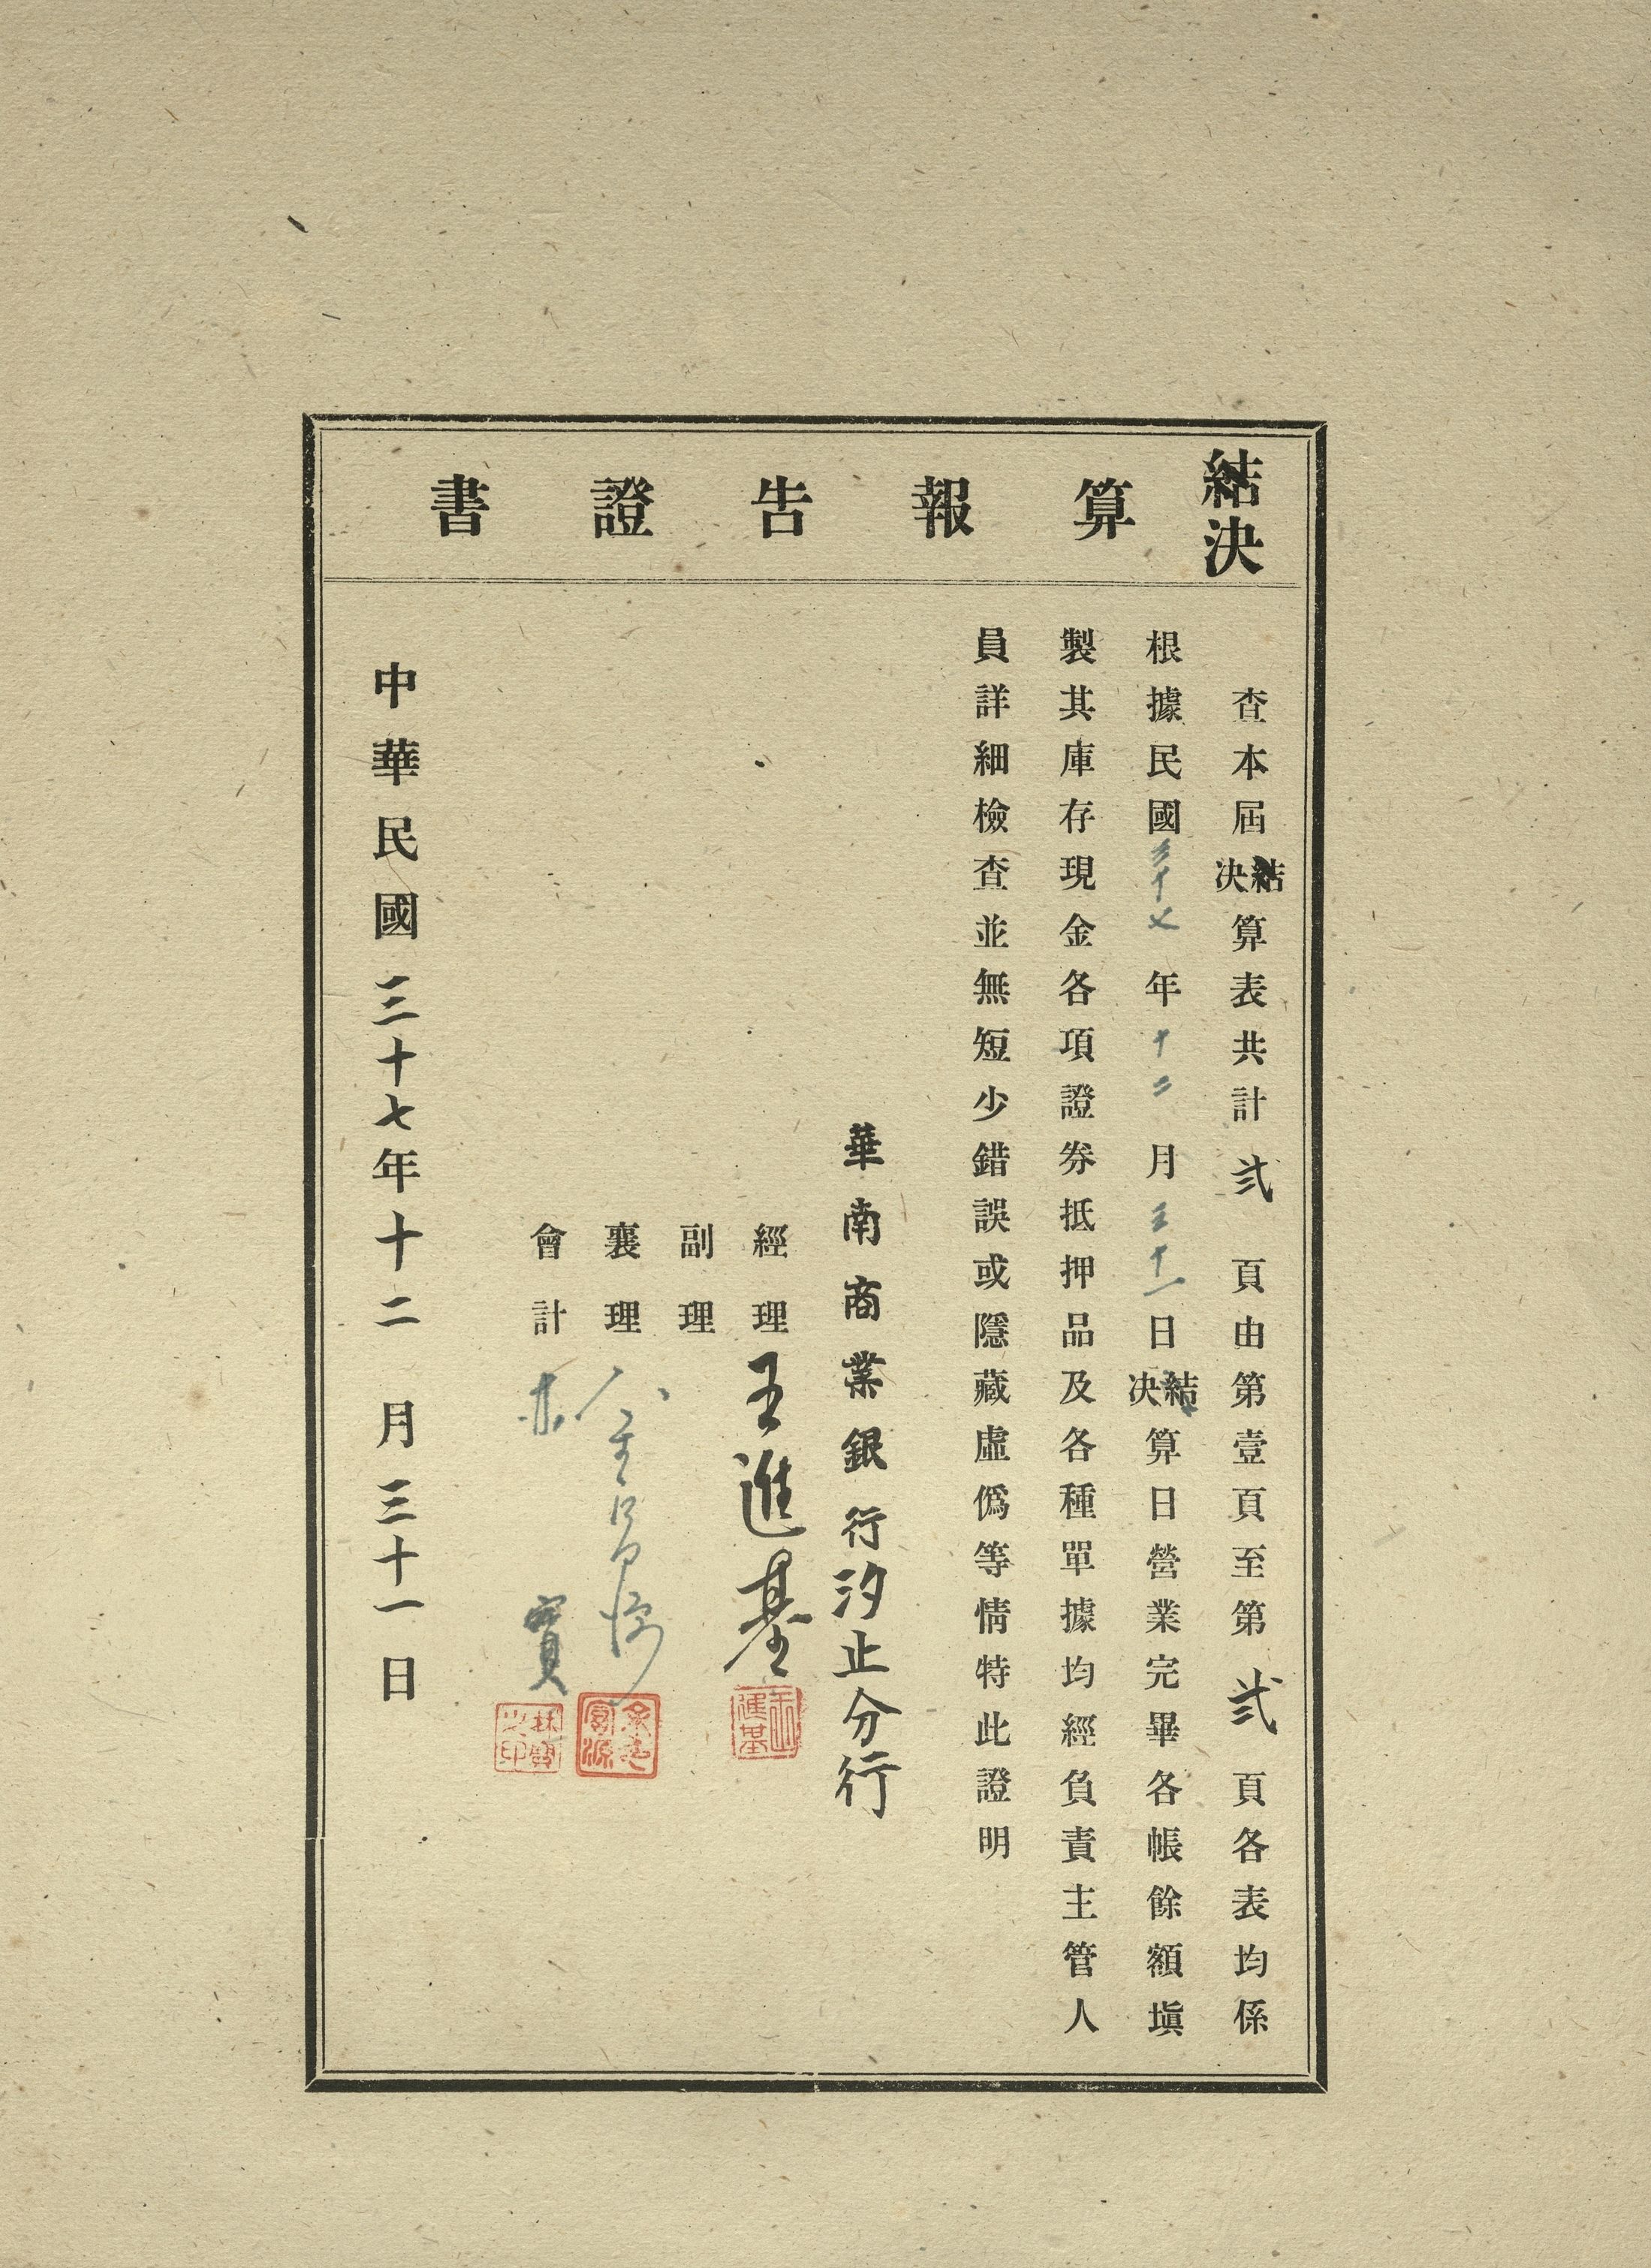 結決算報告證書
查本屆結決算表共計弍頁由第壹頁至第弍頁各表均係
根據民國三十七年十二月三十一日結決算日營業完畢各帳餘額塡
製其庫存現金各項證券抵押品及各種單據均經負責主管人
員詳細檢查並無短少錯誤或隱藏虛僞等情特此證明
華南商業銀行汐止分行
經理 王進基
王進基
副理
襄理
富源
會計 林寶
林寶之印
中華民國三十七年十二月三十一日